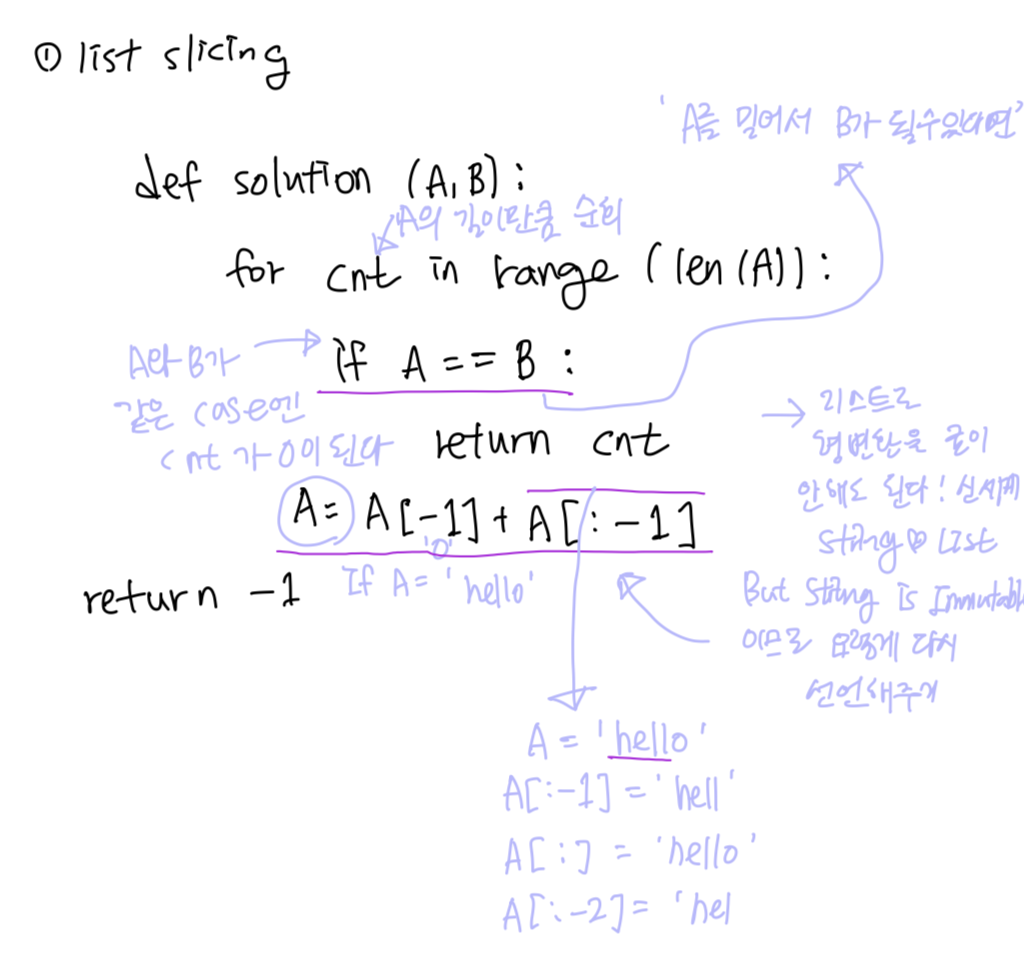 ① list slicing
'A를 밀어서 B가 될수있다면'
def solution (A,B):
A의 길이만큼 순회
for cnt in range (len(A)):
A와 B가
같은 case엔
cnt 가 0이 된다
if A == B :
return cnt
A= A[-1] + A[:-1]
'o'
If A= 'hello'
return -1
→ 리스트로
형변환을 굳이
안해도 된다! 신세계
String ♡ List
But String Is Immutabl
이므로 요렇게 다시
선언해주기
A = 'hello'
A[:-1] = 'hell'
A[:] = 'hello'
A[:-2] = 'hel